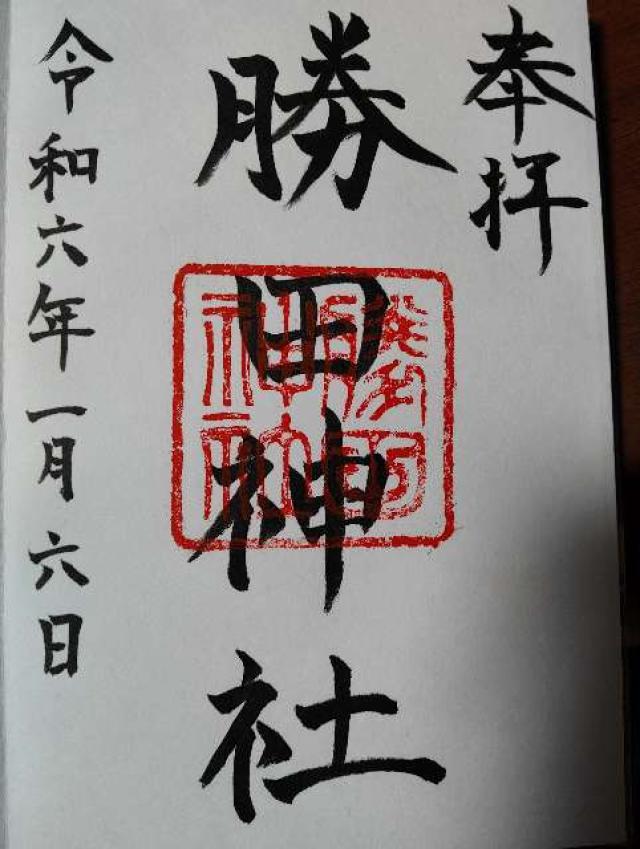 奉拝
勝田神社
勝田神社
令和六年一月六日